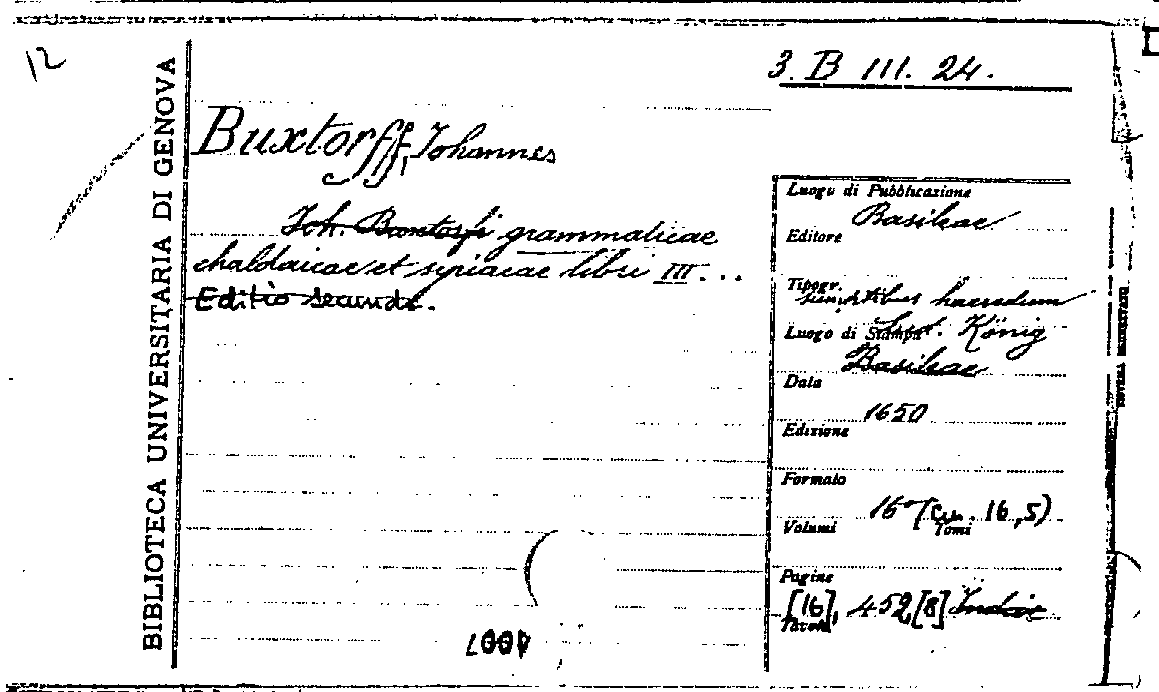 12
3. B III. 24.
BIBLIOTECA UNIVERSITARIA DI GENOVA
Buxtorff, Johannes
Joh. Buxtorfi grammaticae
chaldaicae et syriacae libri III...
Editio secunda.
Luogo di Pubblicazione
Basileae
Editore
Tipogr.
sumptibus haeredum
Luogo di Stampa Lud. König
Basileae
Data
1650
Edizione
Formato
16° (cm. 16,5)
Volumi Tomi
Pagine
[16], 452, [8] Indice
Tavole